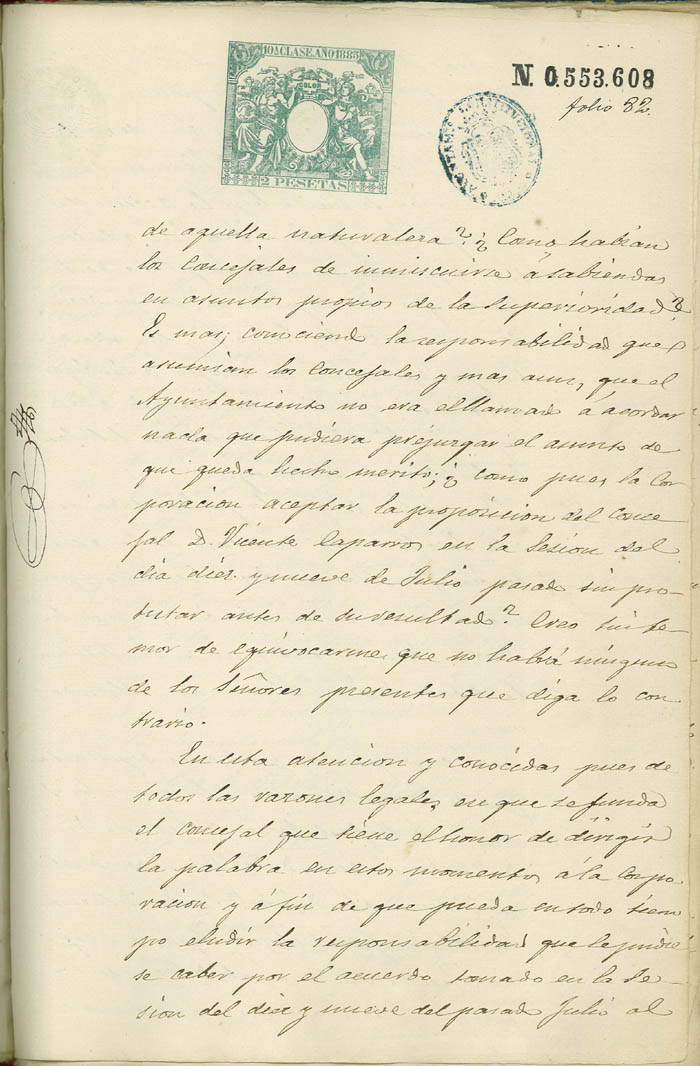 10ª CLASE. AÑO 1885
2 PESETAS
N. 0.553.608
folio 82.
AYUNTAMIENTO CONSTITUCIONAL
de aquella naturaleza? ¿Como habian
los concejales de inmiscuirse á sabiendas
en asuntos propios de la Superioridad?
Es mas; conociendo la responsabilidad que
asumian los concejales y mas aun, que el
Ayuntamiento no era el llamado á acordar
nada que pudiera prejuzgar el asunto de
que queda hecho merito; ¿como pues la Cor
poracion aceptar la proposicion del Conce
jal D. Vicente Caparros en la Sesion del
dia diez y nueve de Julio pasado sin pro-
testar antes de su resultado? Creo sin te-
mor de equivocarme que no habrá ninguno
de los Señores presentes que diga lo con
trario.
En esta atencion y conocidas pues de
todos las razones legales en que se funda
el concejal que tiene el honor de dirigir
la palabra en estos momentos á la Corpo
racion y á fin de que pueda en todo tiem
po eludir la responsabilidad que le pudie
se caber por el acuerdo tomado en la Se-
sion del diez y nueve del pasado Julio al